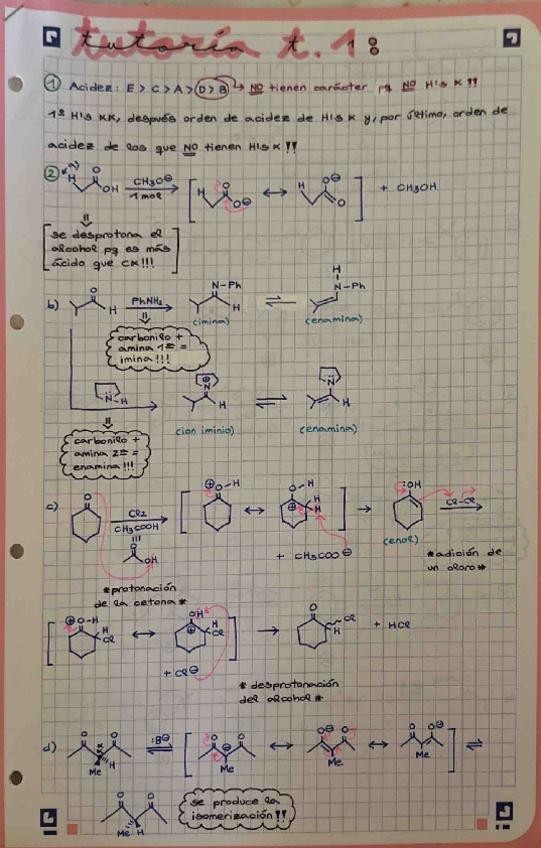 tutoría t. 18
① Acidez: E > C > A > D > B → NO tienen carácter pq NO H's α !!
1º H's αα, después orden de acidez de H's α y, por último, orden de
acidez de los que NO tienen H's α !!
② a) H O OH CH3O⊖ 1 mol [ H O O⊖ ↔ H O⊖ O ] + CH3OH
se desprotona el
alcohol pq es más
ácido que Cα !!!
b) O H PhNH2 N-Ph H (imina) ⇌ H N-Ph (enamina)
carbonilo +
amina 1ª =
imina !!!
N H → ⊕N H (ion iminio) ⇌ N H (enamina)
carbonilo +
amina 2ª =
enamina !!!
c) O Cl2 CH3COOH O OH [ ⊕O-H ↔ O-H ⊕ H H ] → :OH (enol) Cl-Cl →
+ CH3COO⊖
*adición de
un cloro*
*protonación
de la cetona*
[ ⊕O-H H Cl ↔ OH ⊕ H Cl ] → O Cl H + HCl
+ Cl⊖
*desprotonación
del alcohol*
d) O O Me H :B⊖ ⇌ [ O ⊖ O Me ↔ O⊖ O Me ↔ O O⊖ Me ] ⇌
O O Me H
se produce la
isomerización !!